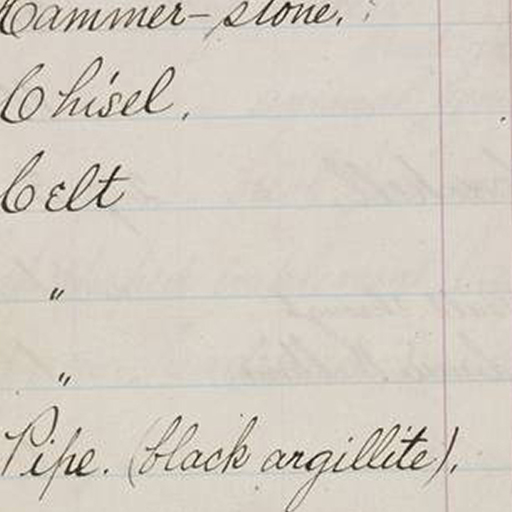 Hammer-stone.
Chisel.
Celt
"
"
Pipe. (black argillite).